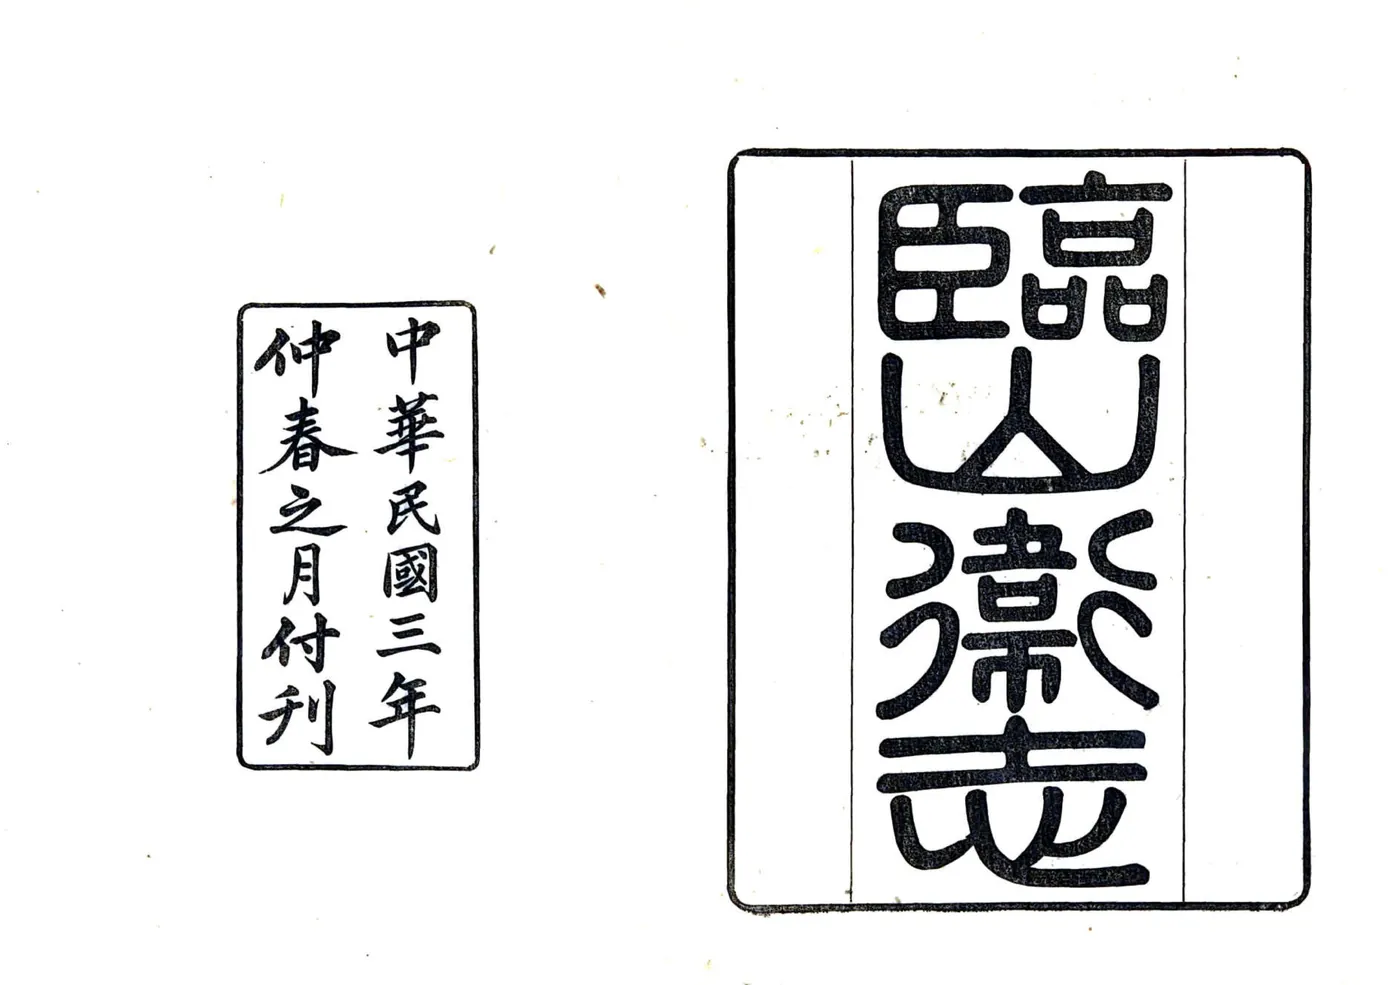 臨山衞志
中華民國三年
仲春之月付刋